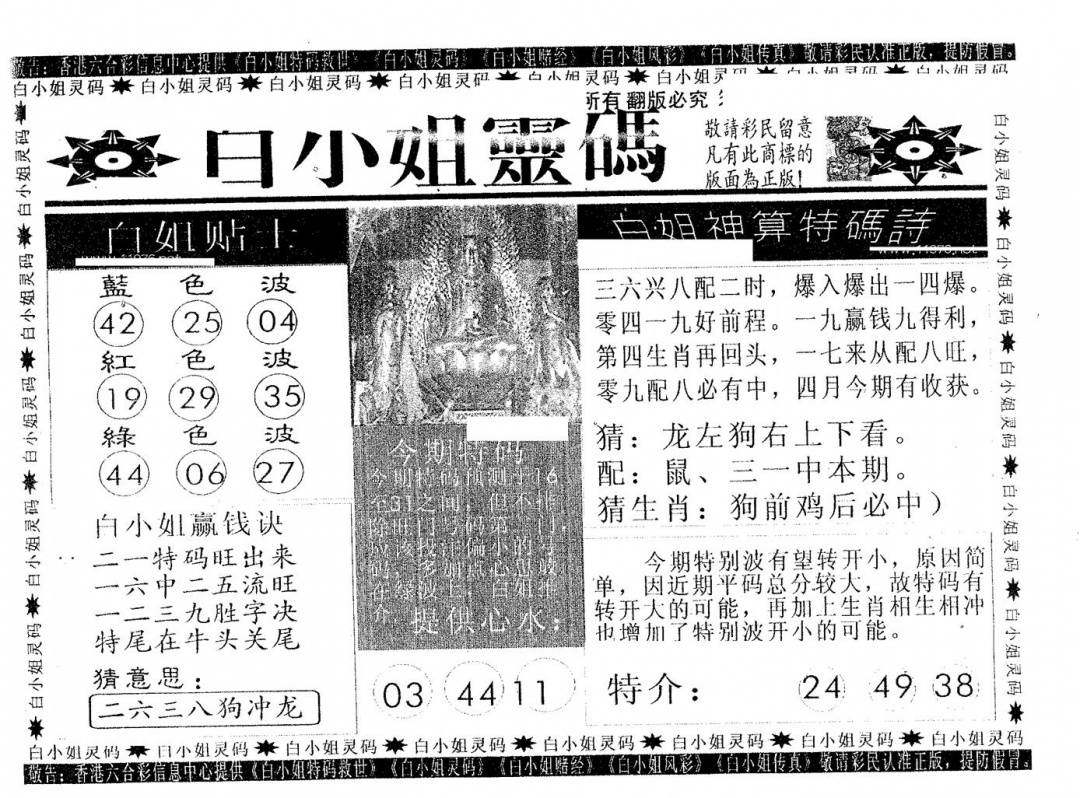 敬告：香港六合彩信息中心提供《白小姐特码救世》《白小姐灵码》《白小姐赌经》《白小姐风彩》《白小姐传真》敬请彩民认准正版，提防假冒。
白小姐灵码 白小姐灵码 白小姐灵码 白小姐灵码 白小姐灵码 白小姐灵码
所有 翻版必究
白小姐靈碼
敬請彩民留意
凡有此商標的
版面為正版！
白姐贴士
藍色波
42 25 04
紅色波
19 29 35
綠色波
44 06 27
白小姐赢钱诀
二一特码旺出来
一六中二五流旺
一二三九胜字决
特尾在牛头关尾
猜意思：
二六三八狗冲龙
今期特码
提供心水：
03 44 11
白姐神算特碼詩
三六兴八配二时，爆入爆出一四爆。
零四一九好前程。一九赢钱九得利，
第四生肖再回头，一七来从配八旺，
零九配八必有中，四月今期有收获。
猜：龙左狗右上下看。
配：鼠、三一中本期。
猜生肖：狗前鸡后必中）
今期特别波有望转开小，原因简
单，因近期平码总分较大，故特码有
转开大的可能，再加上生肖相生相冲
也增加了特别波开小的可能。
特介：
24 49 38
白小姐灵码 白小姐灵码 白小姐灵码 白小姐灵码 白小姐灵码 白小姐灵码 白小姐灵码 白小姐灵码
敬告：香港六合彩信息中心提供《白小姐特码救世》《白小姐灵码》《白小姐赌经》《白小姐风彩》《白小姐传真》敬请彩民认准正版，提防假冒。
白小姐灵码 白小姐灵码 白小姐灵码 白小姐灵码 白小姐灵码
白小姐灵码 白小姐灵码 白小姐灵码 白小姐灵码 白小姐灵码